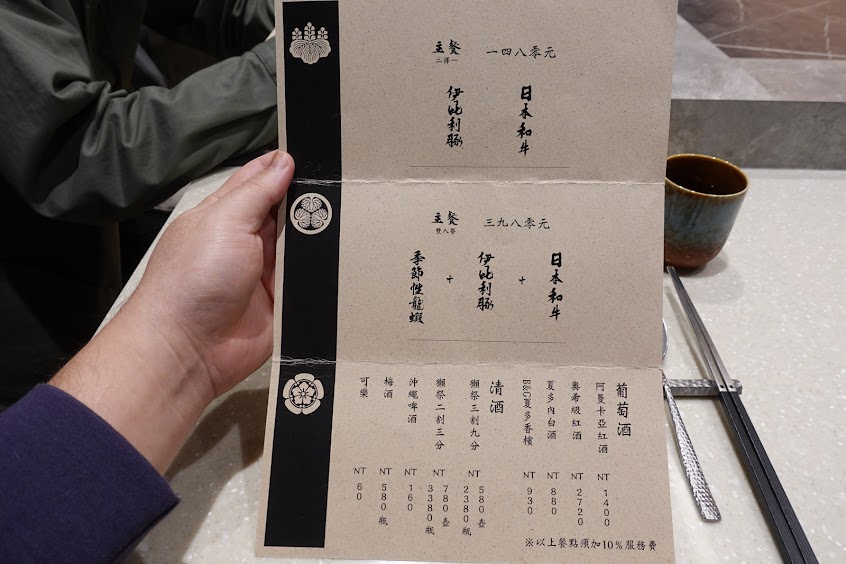 主餐
二擇一
一四八零元
日本和牛
伊比利豚
主餐
雙人餐
三九八零元
日本和牛
+
伊比利豚
+
季節性龍蝦
葡萄酒
阿曼卡亞紅酒 NT 1400
奧希級紅酒 NT 2720
夏多內白酒 NT 880
B&G夏多香檳 NT 930
清酒
獺祭三割九分 NT 580壺
2380瓶
獺祭二割三分 NT 780壺
3380瓶
沖繩啤酒 NT 160
梅酒 NT 580瓶
可樂 NT 60
※以上餐點須加10%服務費